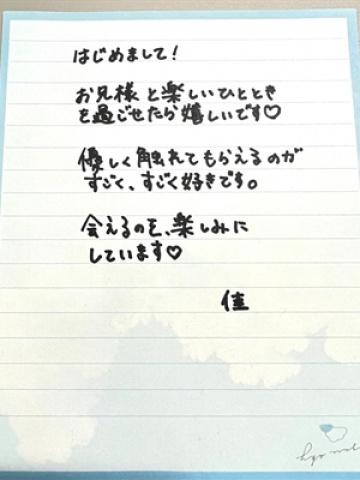 はじめまして!
お兄様と楽しいひととき
を過ごせたら嬉しいです♡
優しく触れてもらえるのが
すごく、すごく好きです。
会えるのを、楽しみに
しています♡
佳